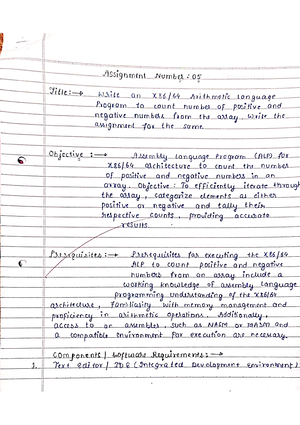 Assignment Number: 05
Title:→ Write an X86/64 Arithmetic Language
Program to count number of positive and
negative numbers from the array. Write the
assignment for the same.
Objective :→ Assembly Language Program (ALP) for
X86/64 architecture to count the number
of positive and negative numbers in an
array. Objective: To efficiently iterate through
the array, categorize elements as either
positive or negative and tally their
respective counts, providing accurate
results.
Prerequisites:→ Prerequisites for executing the X86/64
ALP to count positive and negative
numbers from an array include a
working knowledge of assembly language
programming understanding of the x86/64
architecture, Familiarity with memory management and
proficiency in arithmetic operations. Additionally,
access to an assembler, such as NASM or MASM and
a compatible environment for execution are necessary.
Components / Software Requirements:→
1. Text editor / IDE (Integrated Development Environment)